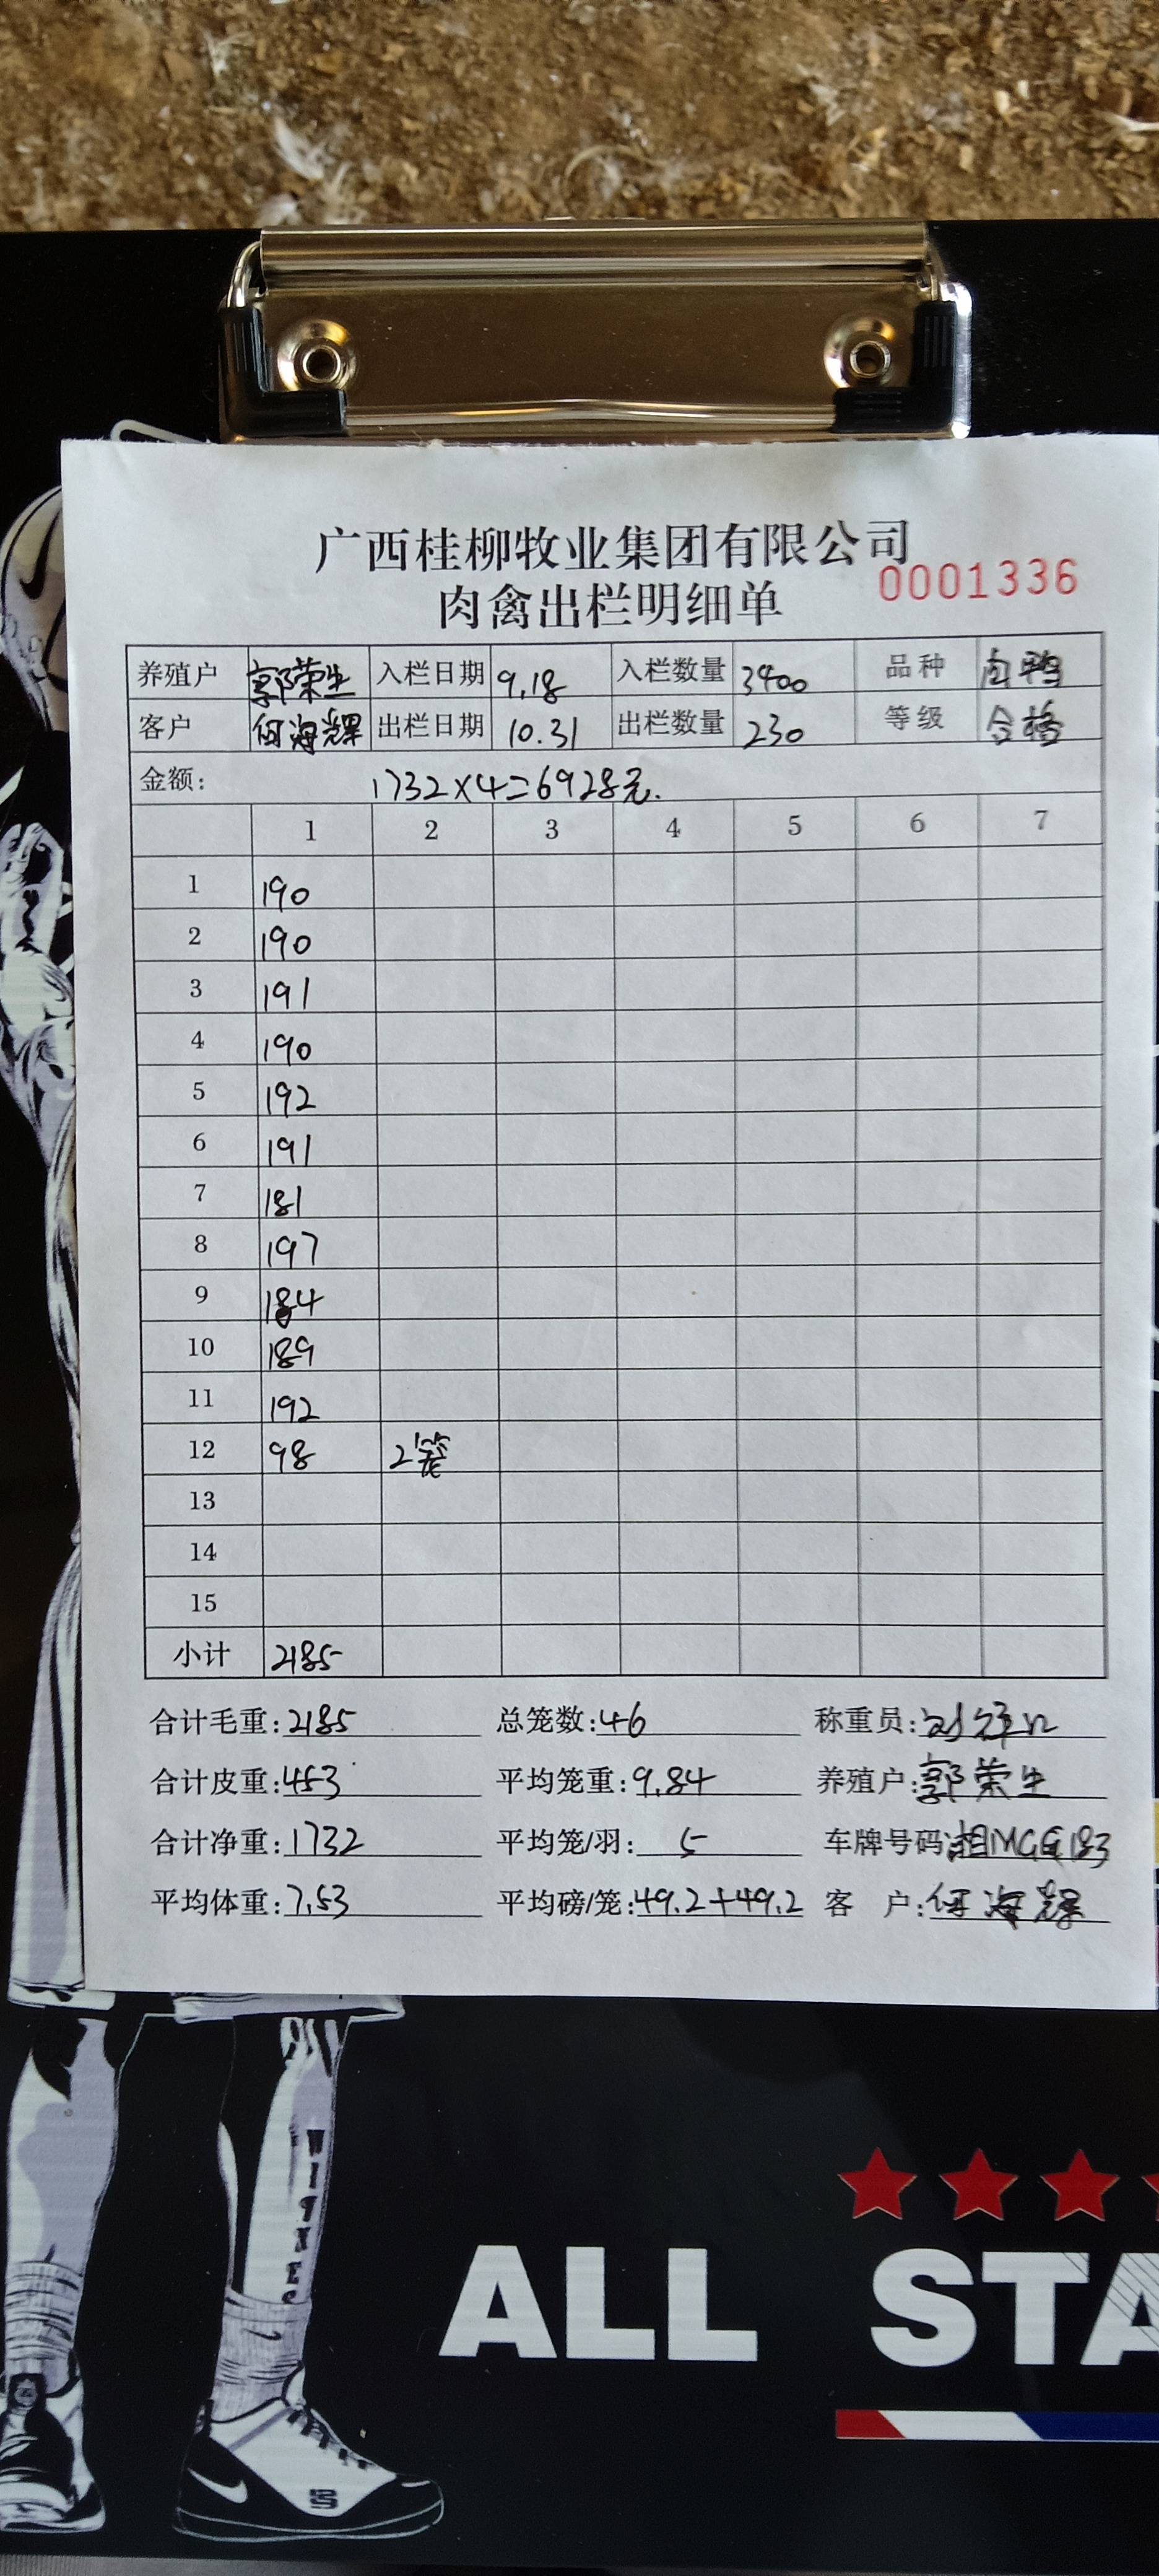 广西桂柳牧业集团有限公司
肉禽出栏明细单 0001336
养殖户 郭荣生 入栏日期 9.18 入栏数量 3400 品种 肉鸭
客户 何海辉 出栏日期 10.31 出栏数量 230 等级 合格
金额: 1732×4=6928元.
1 2 3 4 5 6 7
1 190
2 190
3 191
4 190
5 192
6 191
7 181
8 197
9 184
10 189
11 192
12 98 2笼
13
14
15
小计 2185
合计毛重:2185 总笼数:46 称重员:
合计皮重:453 平均笼重:9.84 养殖户:郭荣生
合计净重:1732 平均笼/羽: 5 车牌号码:
平均体重:7.53 平均磅/笼:49.2+49.2 客 户:何海辉
ALL STA